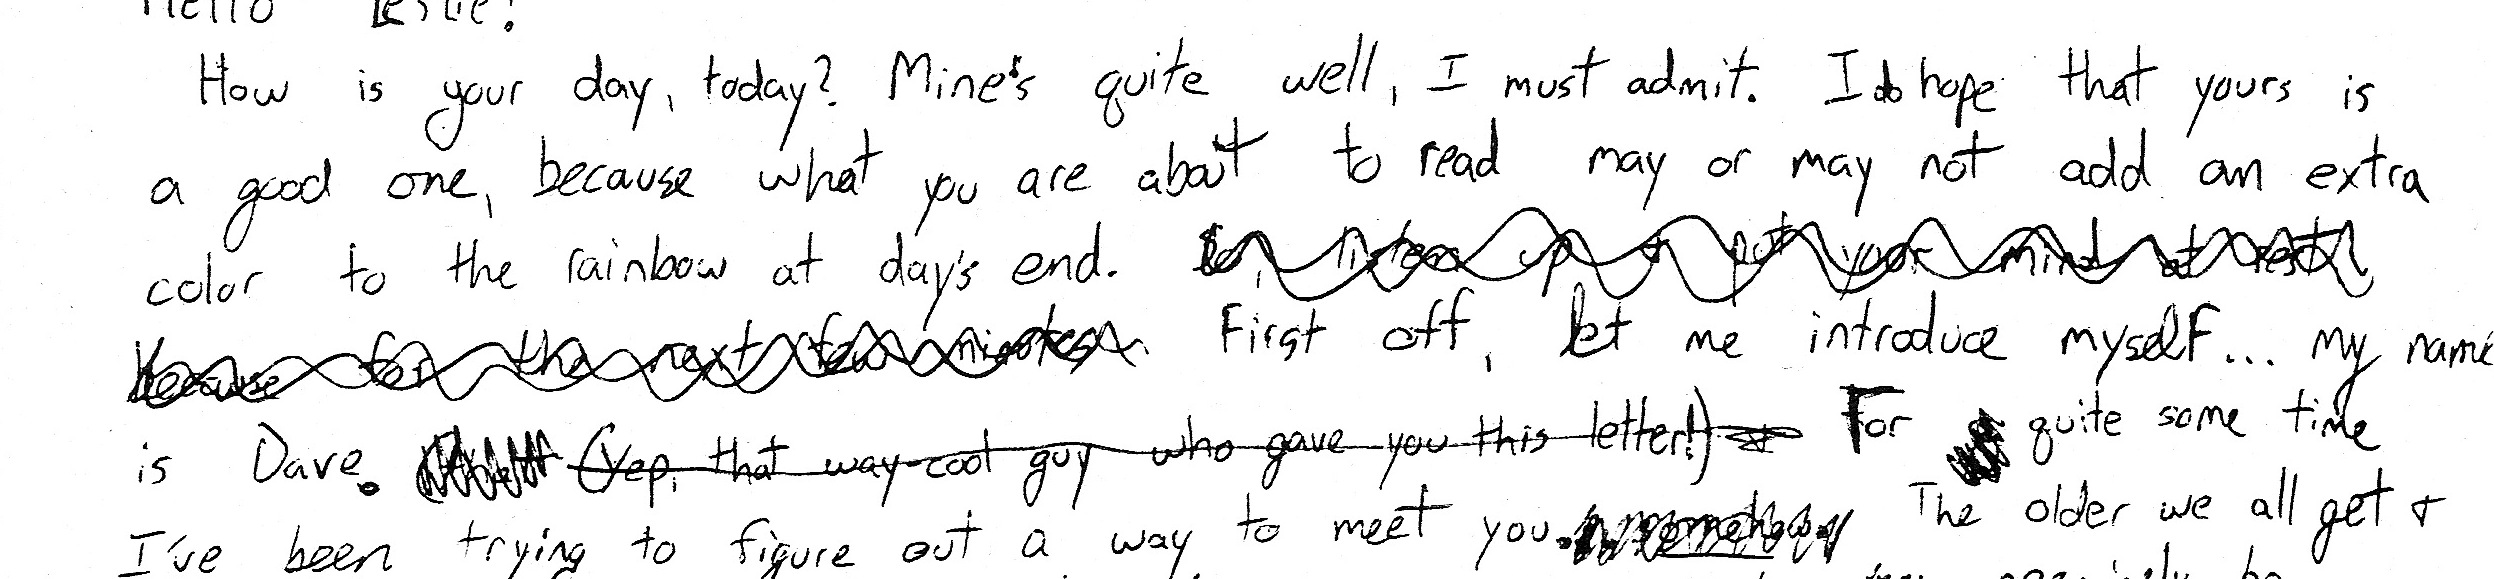 Hello Leslie!
How is your day, today? Mine's quite well, I must admit. I do hope that yours is
a good one, because what you are about to read may or may not add an extra
color to the rainbow at day's end. So, listen up + put your mind at rest
because for the next few minutes. First off, let me introduce myself... My name
is Dave. (Yep, that way-cool guy who gave you this letter!) For quite some time
I've been trying to figure out a way to meet you. somehow. The older we all get +